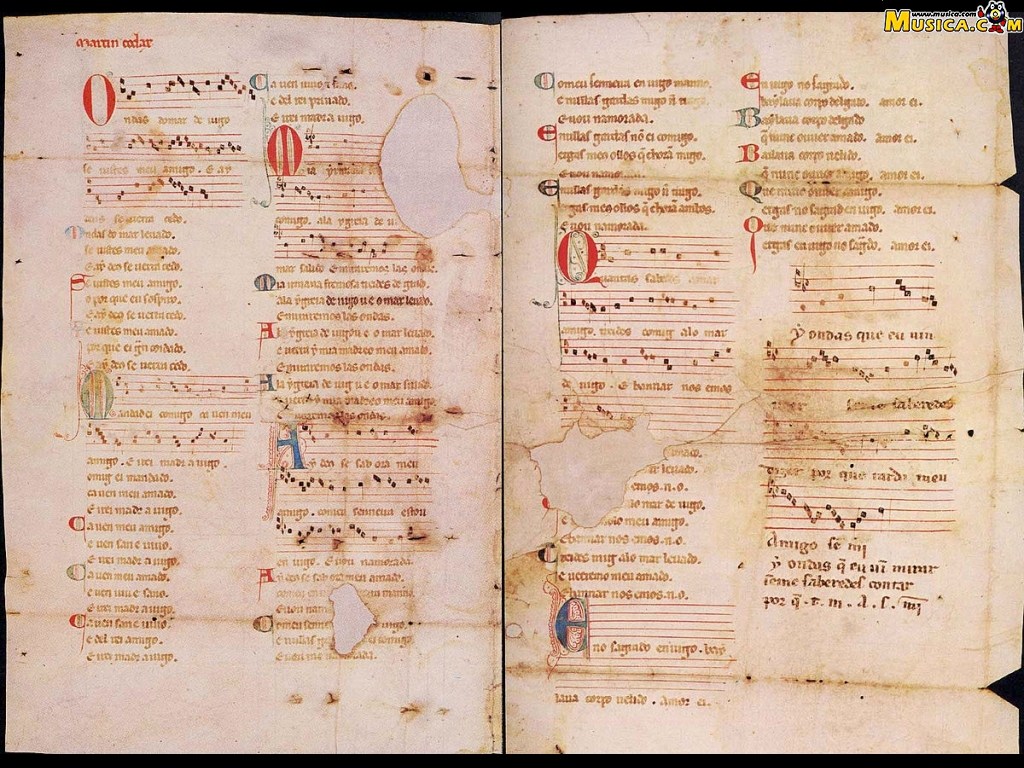 Martin codax
Ondas do mar de uigo
se uistes meu amigo. E ay
deus se uerra cedo.
Ondas do mar leuado.
se uistes meu amado.
E ay deus se uerra cedo.
Se uistes meu amigo.
o por que eu sospiro.
E ay deus se uerra cedo.
Se uistes meu amado.
por que ei gran coidado.
E ay deus se uerra cedo.
Mandad ei comigo ca uen meu
amigo. E irei madr a uigo.
comig ei mandado.
ca uen meu amado.
E irei madr a uigo.
Ca uen meu amigo.
e uen san e uiuo.
E irei madr a uigo.
Ca uen meu amado.
e uen uiu e sano.
E irei madr a uigo.
Ca uen san e uiuo.
e del rei amigo.
E irei madr a uigo.
Ca uen uiuo e sano.
e del rei priuado.
E irei madr a uigo.
Mia yrmana
comigo. ala ygreia de u
mar salido E miraremos las ondas.
Mia irmana fremosa treides de grado.
ala ygreia de uigo u e o mar leuado.
E miraremos las ondas.
A la ygreia de uigo u e o mar leuado.
e uerra y mia madre o meu amado.
E miraremos las ondas.
A la ygreia de uig u e o mar salido.
e uerra y mia madre o meu amigo.
E miraremos las ondas.
Ay deus se sab ora meu
amigo. com eu senneira estou
en uigo. E uou namorada.
Ay deus se sab ora meu amado.
com eu en uigo senneira manno.
E uou nam
Com eu senn uigo.
e nullas g comigo.
E uou namorada.
Com eu senneira en uigo manno.
e nullas gardas migo n trago.
E uou namorada.
E nullas gardas nõ ei comigo.
ergas meus ollos q chorã migo.
E uou nam
E nullas gardas migo n trago.
ergas meus ollos q chorã ambos.
E uou namorada.
Quantas sabedes amar
amigo. treides comig alo mar
de uigo. E bannar nos emos
amado.
r leuado.
emos. n. o.
lo mar de uigo.
e ueeremo lo meu amigo.
E bannar nos emos. n. o.
Treides mig alo mar leuado.
e ueeremo meu amado.
E bannar nos emos. n. o.
E no sagrado en uigo. bay
laua corpo uelido. Amor ei.
En uigo no sagrado.
baylaua corpo delgado. amor ei.
Baylaua corpo delgado
q nunc ouuer amado. amor ei.
Bailaua corpo uelido.
q nunc ouuer amigo. amor ei.
Que nunc ouuer amigo.
ergas no sagrad en uigo. amor ei.
Que nunc ouuer amado.
ergas en uigo no sagrado. amor ei.
Ay ondas que eu uin
ueer se me saberedes
dizer por que tarda meu
Amigo se mi
Ay ondas q eu uin mirar
se me saberedes contar
por q. t. m. A. s. mi
www.musica.com
MUSICA.COM